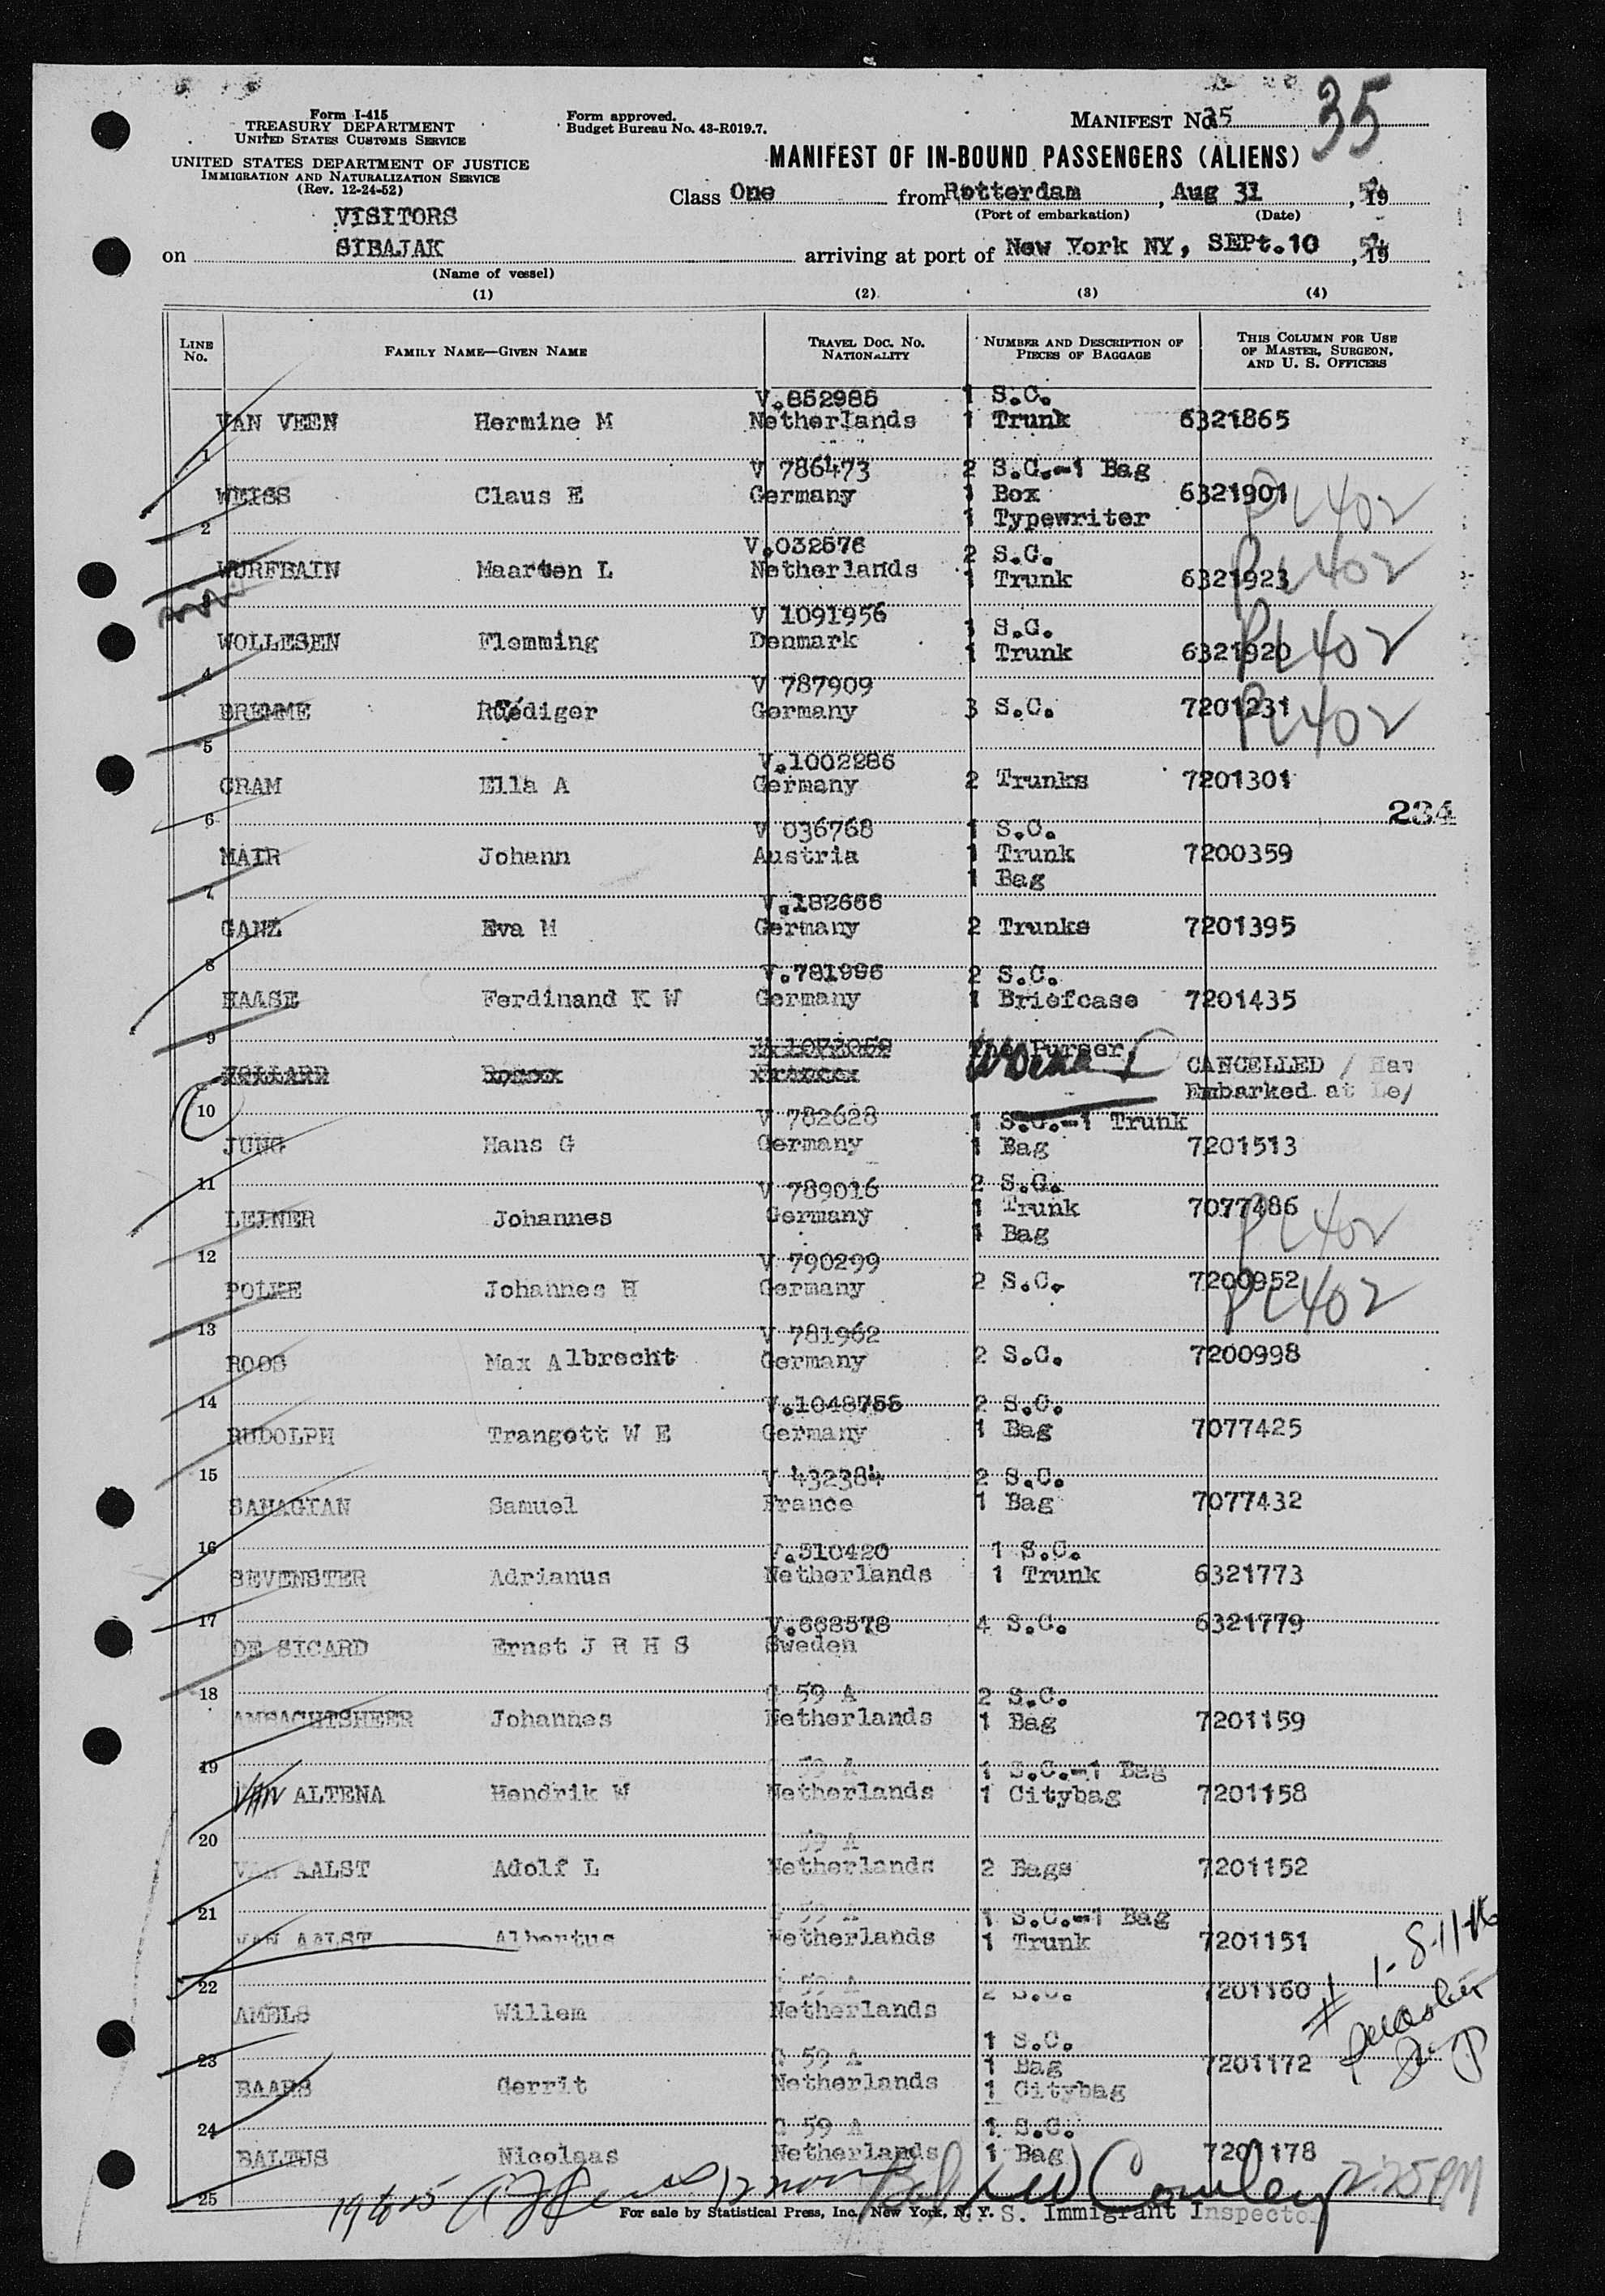 Form I-415
TREASURY DEPARTMENT
UNITED STATES CUSTOMS SERVICE
UNITED STATES DEPARTMENT OF JUSTICE
IMMIGRATION AND NATURALIZATION SERVICE
(Rev. 12-24-52)
Form approved.
Budget Bureau No. 43-R019.7.
MANIFEST No. 35
35
MANIFEST OF IN-BOUND PASSENGERS (ALIENS)
Class One from Rotterdam, Aug 31, 19
(Port of embarkation) (Date)
VISITORS
on SIBAJAK arriving at port of New York NY, SEPt.10, 19
(Name of vessel)
(1) (2) (3) (4)
LINE No. FAMILY NAME—GIVEN NAME TRAVEL DOC. NO. NATIONALITY NUMBER AND DESCRIPTION OF PIECES OF BAGGAGE THIS COLUMN FOR USE OF MASTER, SURGEON, AND U. S. OFFICERS
V.852985 1 S.C.
VAN VEEN Hermine M Netherlands 1 Trunk 6321865
1
V 786473 2 S.C.-1 Bag
WEISS Claus E Germany 1 Box 6321901 PL 402
1 Typewriter
2
V.032576 2 S.C.
WURFBAIN Maarten L Netherlands 1 Trunk 6321923 PL 402
3
V 1091956 1 S.C.
WOLLESEN Flemming Denmark 1 Trunk 6321920 PL 402
4
V 787909
BREMME Ruediger Germany 3 S.C. 7201231 PL 402
5
V.1002286
GRAM Ella A Germany 2 Trunks 7201301
6
234
V 036768 1 S.C.
MAIR Johann Austria 1 Trunk 7200359
1 Bag
7
V.182666
GANZ Eva M Germany 2 Trunks 7201395
8
V.781996 2 S.C.
HAASE Ferdinand K W Germany 1 Briefcase 7201435
9
The Purser
CANCELLED / Hav
Embarked at Le/
10
V 782628 1 S.C.-1 Trunk
JUNG Hans G Germany 1 Bag 7201513
11
V 789016 2 S.C.
LEINER Johannes Germany 1 Trunk 7077486 PL 402
1 Bag
12
V 790299
POLKE Johannes H Germany 2 S.C. 7200952 PL 402
13
V 781962
ROOS Max Albrecht Germany 2 S.C. 7200998
14
V.1048755 2 S.C.
RUDOLPH Trangott W E Germany 1 Bag 7077425
15
V 432384 2 S.C.
SAHAGIAN Samuel France 1 Bag 7077432
16
V.510420 1 S.C.
SEVENSTER Adrianus Netherlands 1 Trunk 6321773
17
V.668578 4 S.C. 6321779
DE SICARD Ernst J R H S Sweden
18
C 59 A 2 S.C.
AMBACHTSHEER Johannes Netherlands 1 Bag 7201159
19
C 59 A 1 S.C.-1 Bag
VAN ALTENA Hendrik W Netherlands 1 Citybag 7201158
20
C 59 A
VAN AALST Adolf L Netherlands 2 Bags 7201152
21
C 59 A 1 S.C.-1 Bag
VAN AALST Albertus Netherlands 1 Trunk 7201151
22
C 59 A 2 S.C. 7201160
AMELS Willem Netherlands
23
1 S.C.
C 59 A 1 Bag 7201172
BAARS Gerrit Netherlands 1 Citybag
24
C 59 A 1 S.C.
BALTUS Nicolaas Netherlands 1 Bag 7201178
25
2:25 PM
For sale by Statistical Press, Inc., New York, N. Y.
U. S. Immigrant Inspector